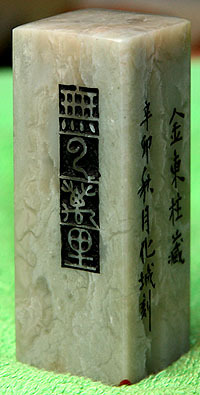 無里
金東柱藏
辛卯秋月化城刻